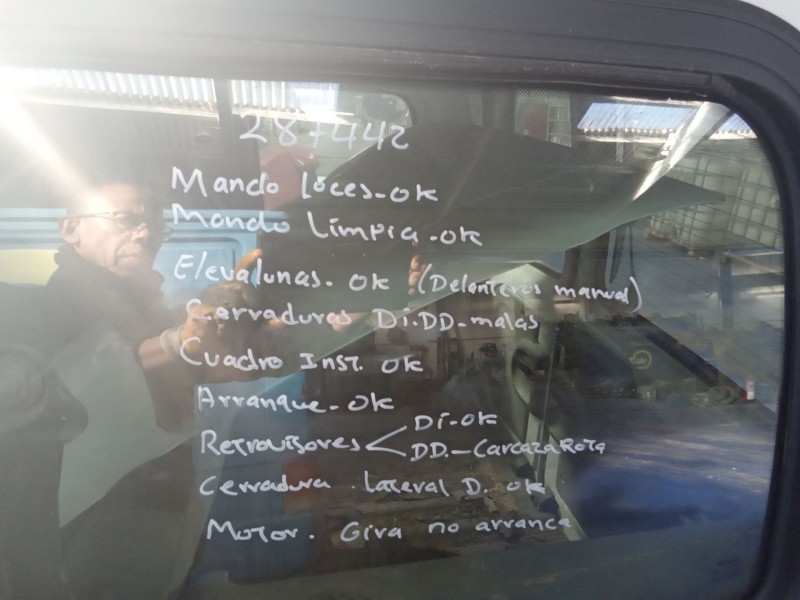 287442
Mando lóces-ok
Mando Limpia-ok
Elevalunas. ok (Delanteros manual)
Cerraduras Di.DD-malas
Cuadro Inst. ok
Arranque-ok
Retrovisores < Di-ok
DD.-Carcaza Rota
Cerradura lateral D. ok
Motor. Gira no arranca